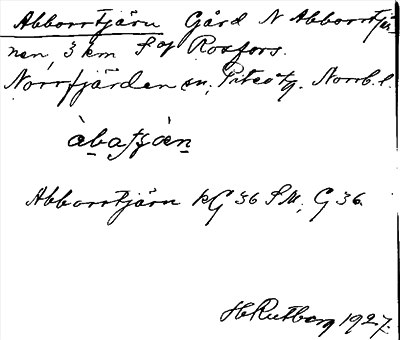 Abborrtjärn Gård N Abborrtjär-
nen, 3 km S of Rosfors.
Norrfjärden sn, Piteå tg. Norrb. l.
àbaʃæn
Abborrtjärn kG 36 SM, G 36
H Rutberg 1927.